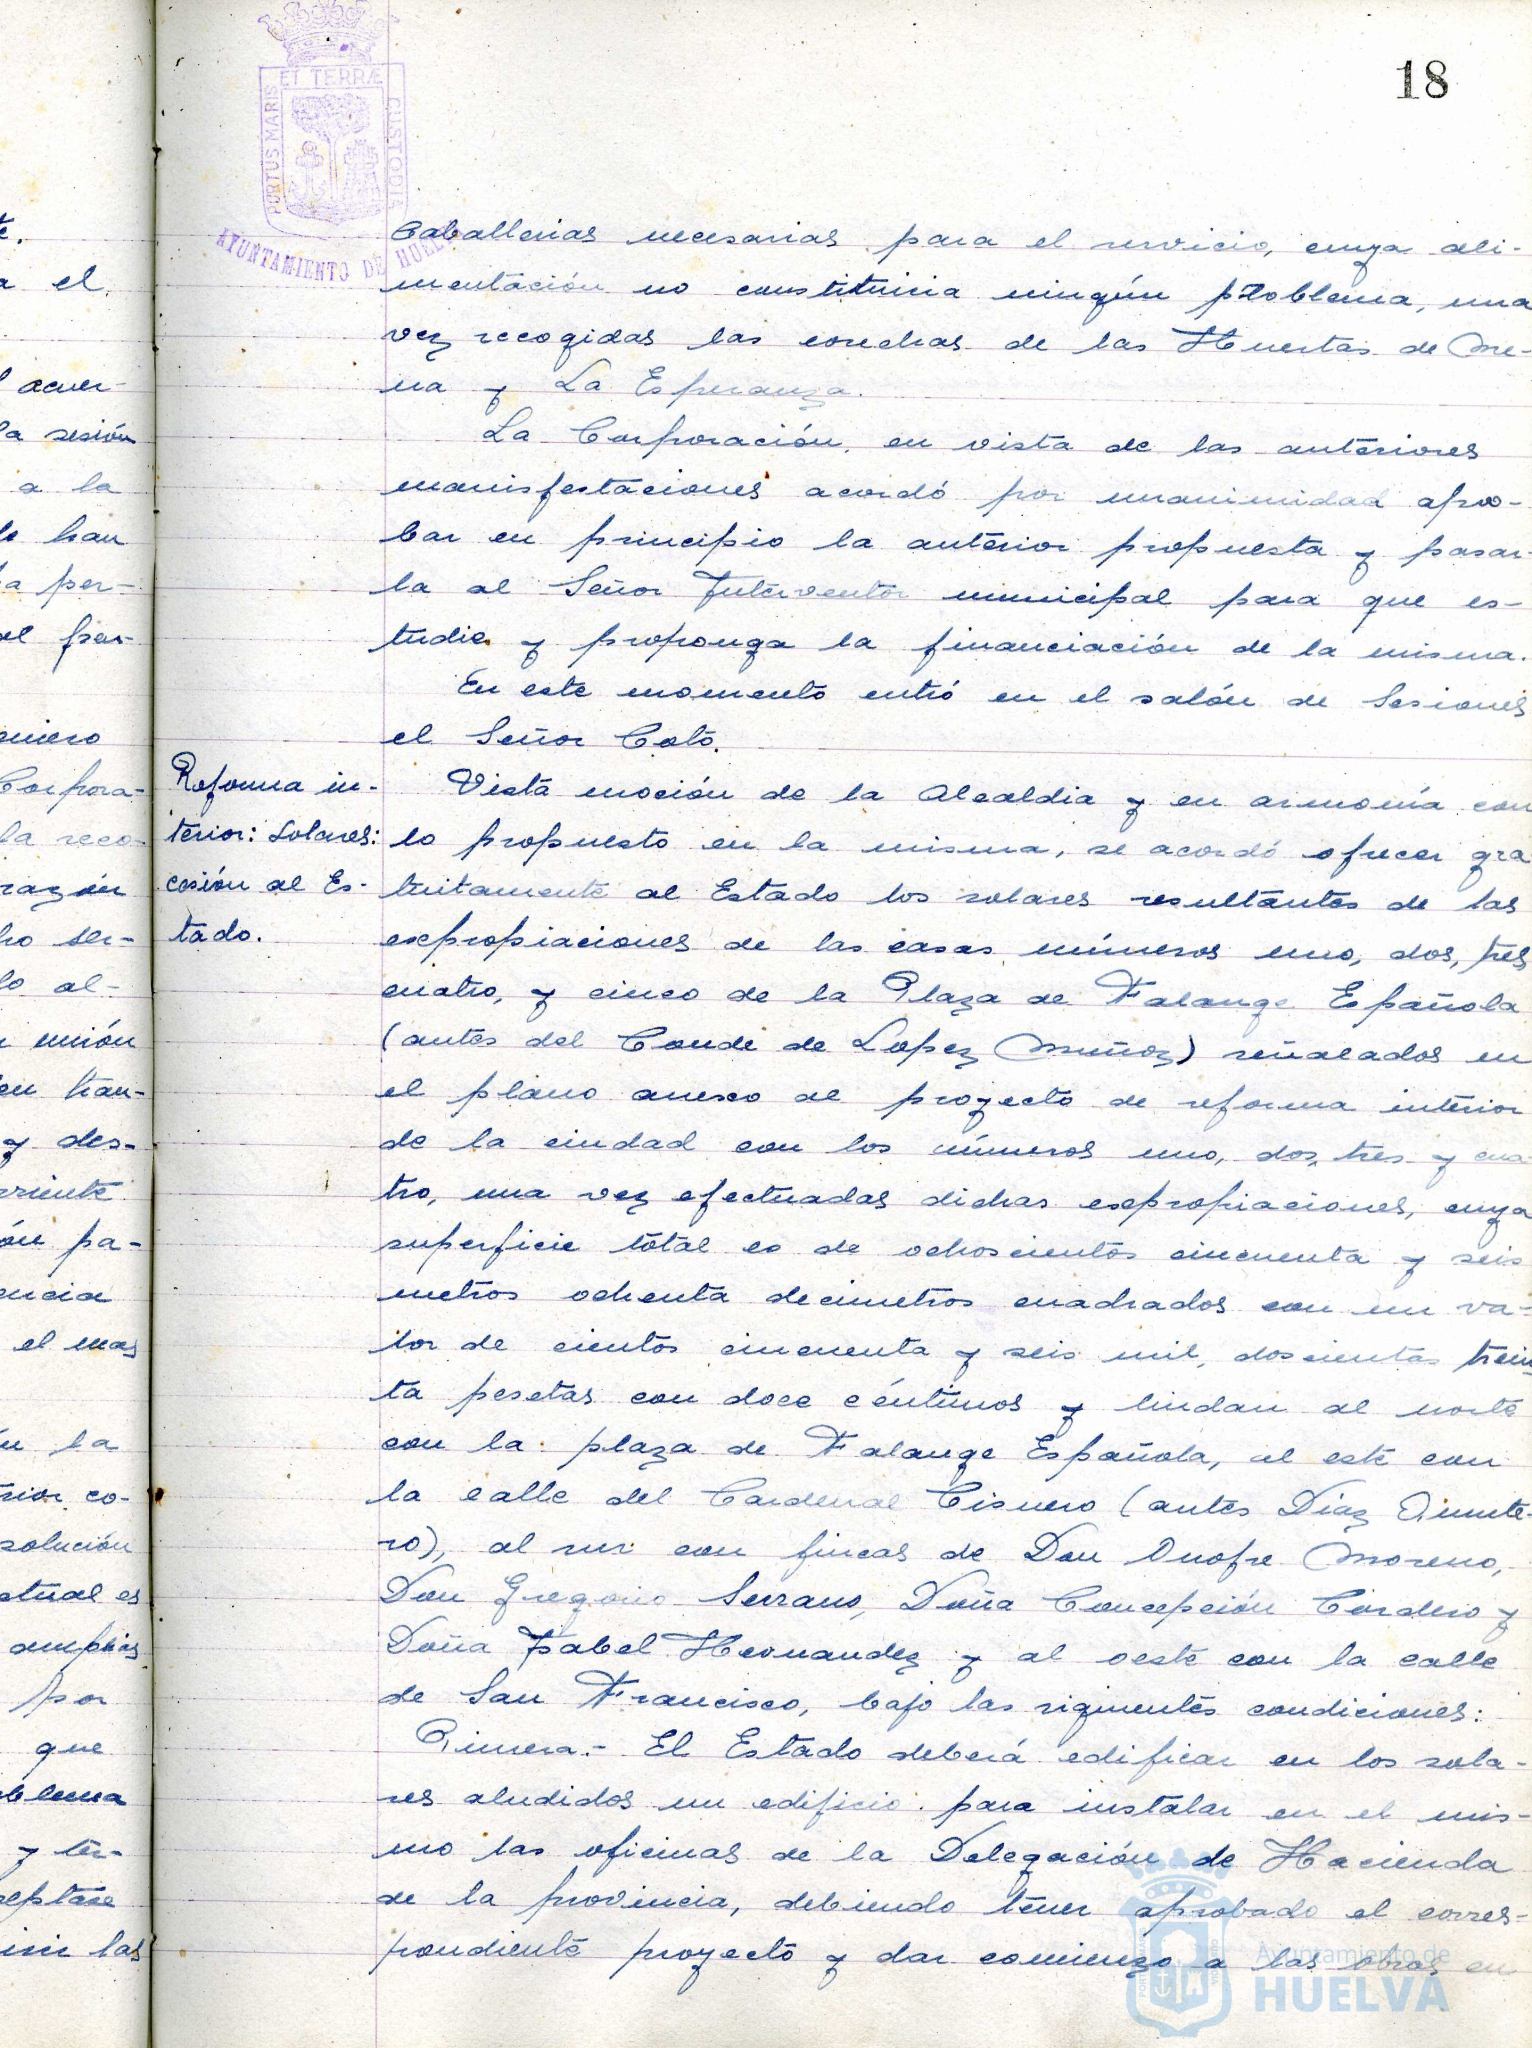 18
PORTUS MARIS ET TERRÆ CUSTODIA
AYUNTAMIENTO DE HUELVA
te.
a el
l acuer-
la sesión
a la
le han
la per-
al per-
eniero
Corpora-
la reco-
razón
ho ser-
lo al-
unión
en tran-
y des-
rriente
ón pa-
encia
el mas
la
rior co-
solución
ctual es
amplias
por
que
oblema
y ter-
reptase
las
caballerias necesarias para el servicio, cuya ali-
mentación no constituiria ningún problema, una
vez recogidas las cosechas de las Huertas de Me-
na y La Esperanza.
La Corporación, en vista de las anteriores
manisfestaciones acordó por unanimidad apro-
bar en principio la anterior propuesta y pasar-
la al Señor Interventor municipal para que es-
tudie y proponga la financiación de la misma.
En este momento entró en el salón de Sesiones
el Señor Coto.
Reforma in-
terior: Solares:
cesión al Es-
tado.
Vista moción de la Alcaldia y en armonía con
lo propuesto en la misma, se acordó ofrecer gra
tuitamente al Estado los solares resultantes de las
expropiaciones de las casas números uno, dos, tres
cuatro, y cinco de la Plaza de Falange Española
(antes del Conde de Lopez Muñoz) señalados en
el plano anexo al proyecto de reforma interior
de la ciudad con los números uno, dos, tres y cua
tro, una vez efectuadas dichas expropiaciones, cuya
superficie total es de ochoscientos cincuenta y seis
metros ochenta decimetros cuadrados con un va-
lor de cientos cincuenta y seis mil, doscientas trein
ta pesetas con doce céntimos y lindan al norte
con la plaza de Falange Española, al este con
la calle del Cardenal Cisnero (antes Diaz Quinte-
ro), al sur con fincas de Don Onofre Moreno,
Don Gregorio Serrano, Doña Concepción Cordero y
Doña Isabel Hernandez y al oeste con la calle
de San Francisco, bajo las siguientes condiciones:
Primera.- El Estado deberá edificar en los sola-
res aludidos un edificio para instalar en el mis-
mo las oficinas de la Delegación de Hacienda
de la provincia, debiendo tener aprobado el corres-
pondiente proyecto y dar comienzo a las obras en
Ayuntamiento de
HUELVA